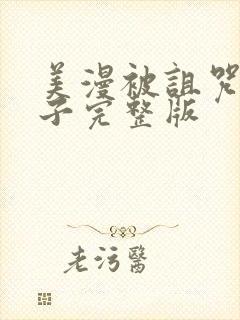 美漫被诅咒
子完整版
老污醫